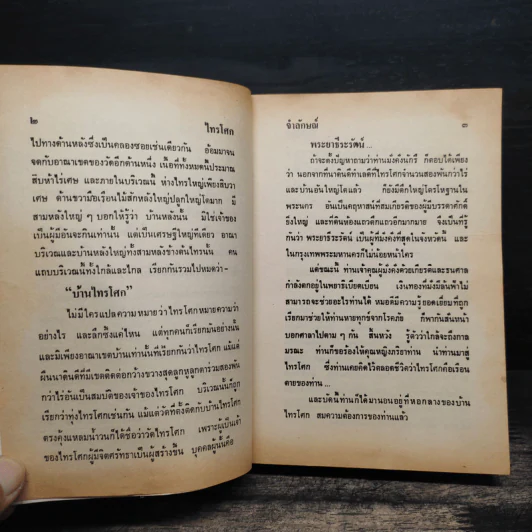 ๒ ไทรโศก
ไปทางด้านหลังซึ่งเป็นคลองซอยเช่นเดียวกัน อ้อมมาจน
จดกับอาณาเขตของวัดอีกด้านหนึ่ง เนื้อที่ทั้งหมดนี้ประมาณ
สิบห้าไร่เศษ และภายในบริเวณนี้ ห่างไทรใหญ่เพียงสิบวา
เศษ ด้านขวามือเรือนไม้สักหลังใหญ่ปลูกใหญ่โตมาก มี
สามหลังใหญ่ ๆ บอกให้รู้ว่า บ้านหลังนั้น มิใช่เจ้าของ
เป็นผู้มีอันจะกินเท่านั้น แต่เป็นเศรษฐีใหญ่ทีเดียว อาณา
บริเวณและบ้านหลังใหญ่ทั้งสามหลังข้างต้นไทรนั้น คน
แถบบริเวณนี้ทั้งใกล้และไกล เรียกกันรวมไปหมดว่า-
“บ้านไทรโศก”
ไม่มีใครแปลความหมายว่าไทรโศกหมายความว่า
อย่างไร และลึกซึ้งแค่ไหน แต่ทุกคนก็เรียกมันอย่างนั้น
และมิเพียงอาณาเขตบ้านเท่านั้นที่เรียกกันว่าไทรโศก แม้แต่
ผืนนาดินดีที่มีเขตติดต่อกว้างขวางสุดลูกหูลูกตารวมสองพัน
กว่าไร่อันเป็นสมบัติของเจ้าของไทรโศก บริเวณนั้นก็ถูก
เรียกว่าทุ่งไทรโศกเช่นกัน แม้แต่วัดที่ตั้งติดกับบ้านไทรโศก
ตรงคุ้งแหลมน้ำวนก็ได้ชื่อว่าวัดไทรโศก เพราะผู้เป็นเจ้า
ของไทรโศกผู้มีจิตศรัทธาเป็นผู้สร้างขึ้น บุคคลผู้นั้นคือ
จำลักษณ์ ๓
พระยาธีระรัตน์ ...
ถ้าจะตั้งปัญหาถามว่าท่านมั่งคั่งนักรึ ก็ตอบได้เพียง
ว่า นอกจากที่นาดินดีทำเลดีที่ไทรโศกจำนวนสองพันกว่าไร่
และบ้านอันใหญ่โตแล้ว ก็ยังมีตึกใหญ่โตรโหฐานใน
พระนคร อันเป็นคฤหาสน์ที่สมเกียรติของผู้มีบรรดาศักดิ์
ยิ่งใหญ่ และที่ดินห้องแถวตึกแถวอีกมากมาย จึงเป็นที่รู้
กันว่า พระยาธีระรัตน์ เป็นผู้มั่งคั่งที่สุดในจังหวัดนั้น และ
ในกรุงเทพพระมหานครก็ไม่น้อยหน้าใคร
แต่ขณะนี้ ท่านเจ้าคุณผู้มั่งคั่งด้วยเกียรติและธนศาล
กำลังตกอยู่ในพยาธิเบียดเบียน เงินทองที่มั่งมีล้นฟ้าไม่
สามารถจะช่วยอะไรท่านได้ หมอดีมีความรู้ยอดเยี่ยมที่ถูก
เรียกมาช่วยให้ท่านหายทุกข์จากโรคภัย ก็พากันสั่นหน้า
บอกศาลาไปตาม ๆ กัน สิ้นหวัง รู้ตัวว่าใกล้จะถึงกาล
มรณะ ท่านก็ขอร้องให้คุณหญิงภริยาท่าน นำท่านมาสู่
ไทรโศก ซึ่งท่านเคยคิดไว้ตลอดชีวิตว่าไทรโศกคือเรือน
ตายของท่าน ...
และบัดนี้ท่านก็ได้มานอนอยู่ที่หอกลางของบ้าน
ไทรโศก สมความต้องการของท่านแล้ว